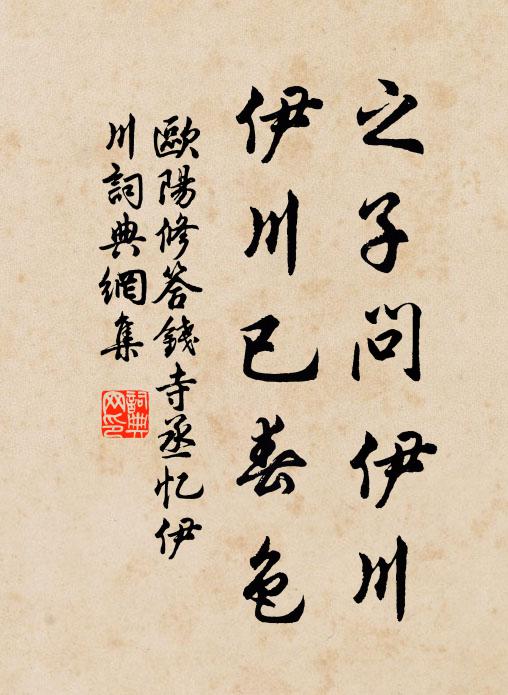 之子問伊川
伊川已春色
歐陽修答錢寺丞忆伊
川詞典網集
詞典
网印